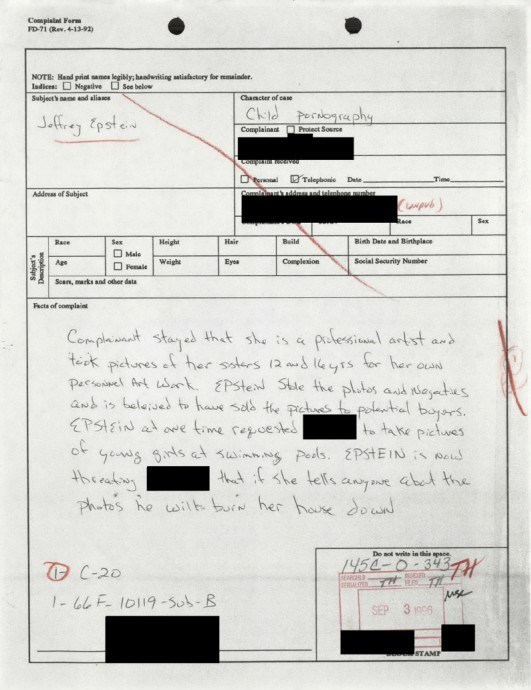 Complaint Form
FD-71 (Rev. 4-13-92)
NOTE: Hand print names legibly; handwriting satisfactory for remainder.
Indices: Negative See below
Subject's name and aliases
Jeffrey Epstein
Character of case
Child Pornography
Complainant Protect Source
Complaint received
Personal Telephonic Date Time
Address of Subject
Complainant's address and telephone number
(unpub)
Race Sex
Subject's Description
Race Sex Height Hair Build Birth Date and Birthplace
Male
Age Female Weight Eyes Complexion Social Security Number
Scars, marks and other data
Facts of complaint
Complainant stayed that she is a professional artist and
took pictures of her sisters 12 and 16 yrs for her own
personnel Art work. EPStein Stole the photos and Negatives
and is beleived to have sold the pictures to potential buyers.
EPSTEIN at one time requested to take pictures
of young girls at swimming pools. EPSTEIN is now
threating that if she tells anyone about the
photo's he will burn her house down
Do not write in this space.
1- C-20
145C-0-343
TH
SEARCHED
TH
TH
1-66F-10119-Sub-B
SEP 3 1996
STAMP